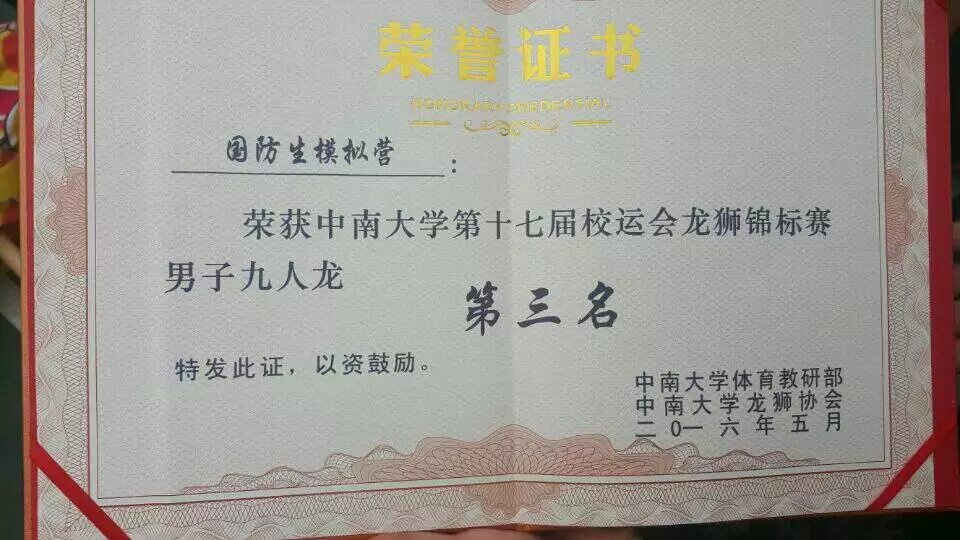 荣誉证书
HONORARY CREDENTIAL
国防生模拟营：
荣获中南大学第十七届校运会龙狮锦标赛
男子九人龙
第三名
特发此证，以资鼓励。
中南大学体育教研部
中南大学龙狮协会
二〇一六年五月